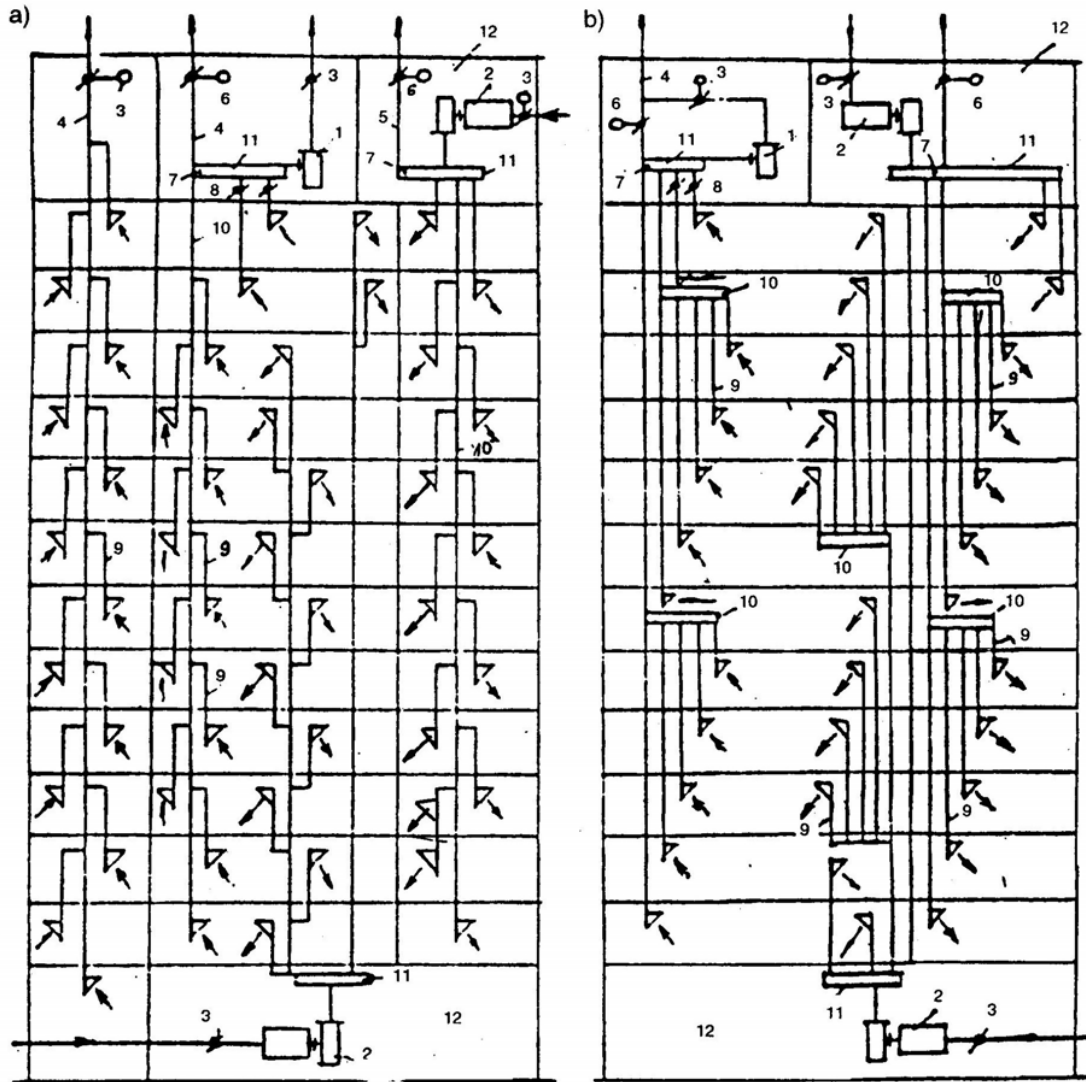 a)
12
3 6 6 2 3
4 3
4 5
1
11
7 8 7 11
10
10
9 9
9
11
3 12
2
b)
12
4 3
6 3 6
2
1
11 7 11
7 8
10 10
9 9
10
10 10
9
9 9
11 2 3
12